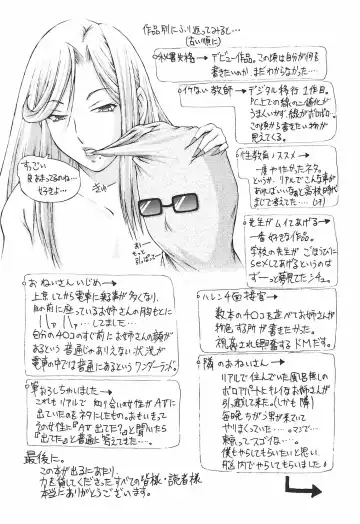 作品別にふり返ってみると…
(古い順に)
○秘書失格→デビュー作品。この頃は自分が何を
書きたいのか、まだわからなかった…
○イケない教師→デジタル移行1作目。
PC上での線の二値化が
うまくいかず、線がボロボロ…
この頃から書きたい物が
見えてくる。
○性教育ノススメ→
一度やりたかったネタ。
というか、リアルでこんな事が
あればいいなぁと高校時代
まじで考えてた…
○先生がムイてあげる→
一番好きな作品。
学校の先生が ごほうびに
sexしてあげるというのは
ずーっと夢見てたシチュ。
すっごい
良
たまってるのね…
好きよ…
お〜
もっと
引っぱって…
○おねいさんいじめ→
上京してから電車に乗る事が多くなり、
目の前に座っているお姉さんの胸もとに
ハァハァ…しました…
自分の40コのすぐ前にお姉さんの顔が
あるという普通じゃありえない状況が
電車の中では普通にあるというワンダーランド。
○ハレンチ面接官→
数本の40コを並べてお姉さんが
物色する所が書きたかった。
視姦され興奮するドMだす。
○筆おろししちゃいました→
これもリアルで知り合いの女性がAVに
出ていたのをネタにしたもの。おもいきって
その女性に『AV出てた?』と聞いたら
『出てた』と普通に答えてきた…。
○隣のおねいさん→
リアルで住んでいた風呂無しの
ボロアパートにキレイなお姉さんが
引っ越して来た。(しかも隣)
毎晩ちがう男が来ていて
やりまくっていた…。マジで…
東京ってスゴイなぁ…
僕もやらしてもらいたいと思い
脳内でやらしてもらいました。
最後に。
この本が出るにあたり、
力を貸してくださったすべての皆様・読者様
本当にありがとうございます。